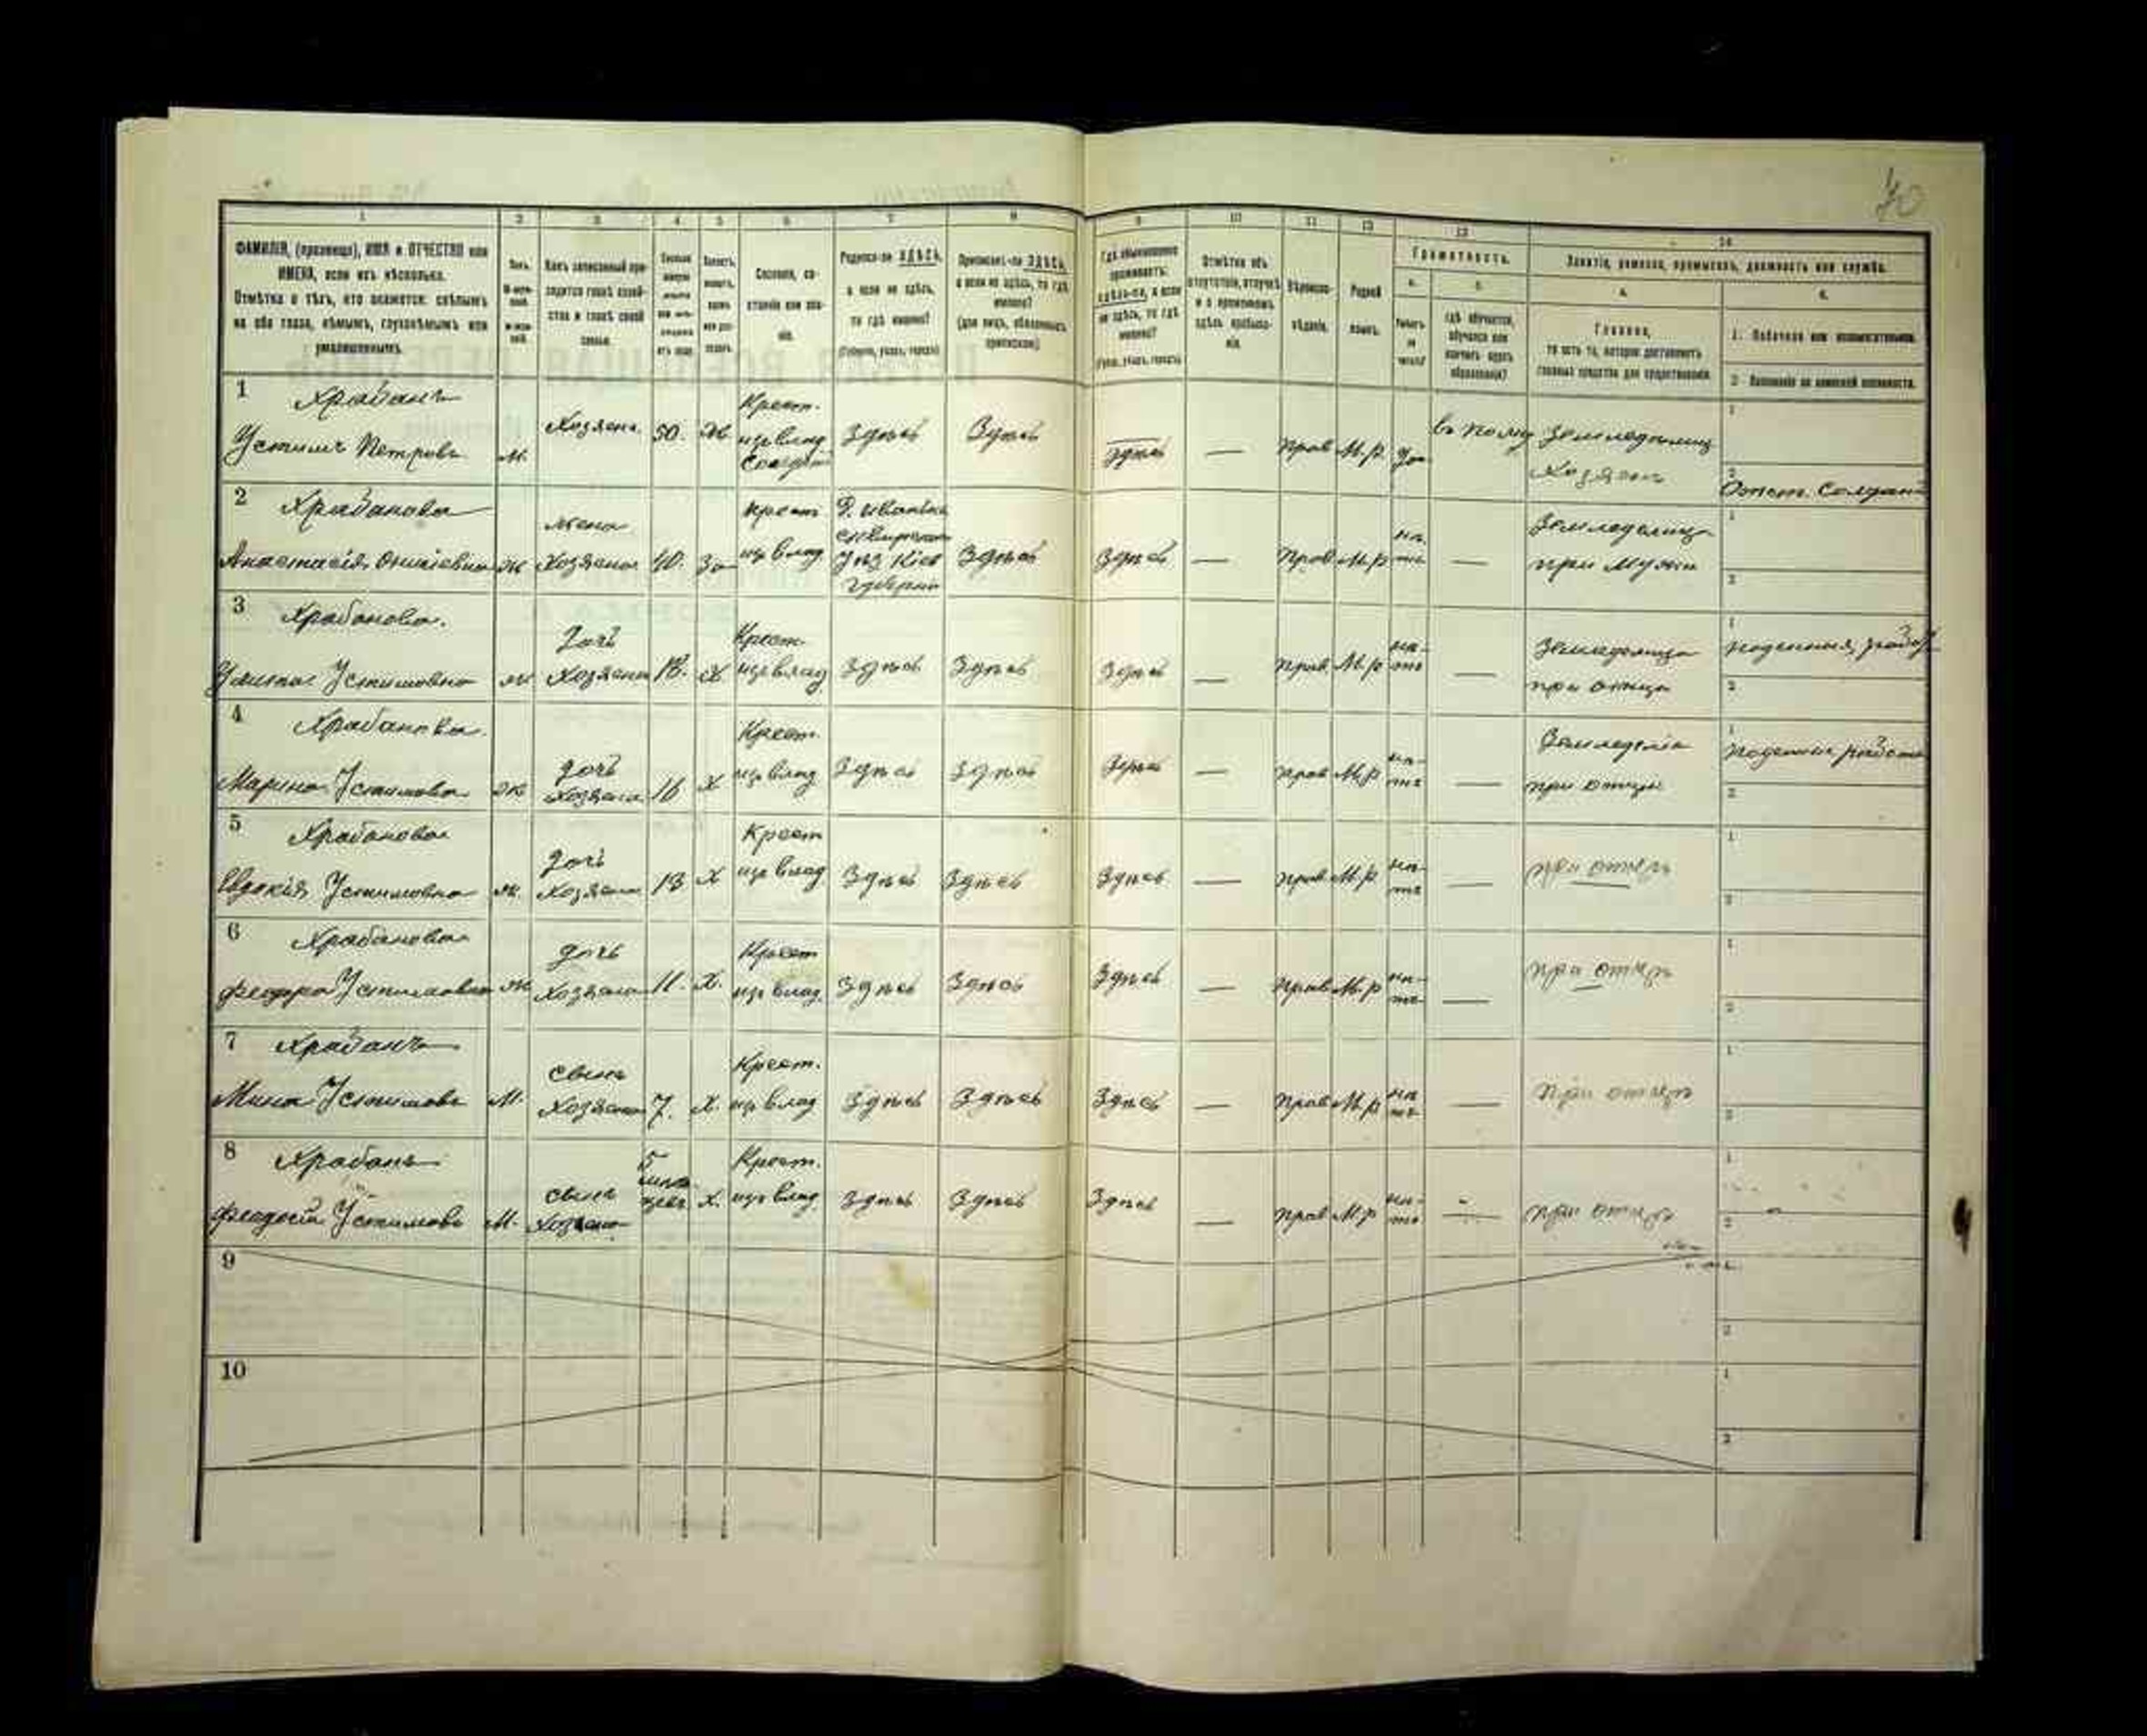 70
1 2 3 4 5 6 7 8 9 10 11 12 13 14
ФАМИЛІЯ, (прозвище), ИМЯ и ОТЧЕСТВО или
ИМЕНА, если ихъ нѣсколько.
Отмѣтка о тѣхъ, кто окажется: слѣпымъ
на оба глаза, нѣмымъ, глухонѣмымъ или
умалишеннымъ.
Полъ.
Какъ записанный при-
ходится главѣ хозяй-
ства и главѣ своей
семьи.
Сословіе, со-
стояніе или зва-
ніе.
Родился-ли ЗДѢСЬ,
а если не здѣсь,
то гдѣ именно?
(Губернія, уѣздъ, городъ)
Приписанъ-ли ЗДѢСЬ,
а если не здѣсь, то гдѣ
именно?
(для лицъ, обязанныхъ
припискою)
Гдѣ обыкновенно
проживаетъ:
здѣсь-ли, а если
не здѣсь, то гдѣ
именно?
Отмѣтка объ
отсутствіи, отлучкѣ
и о временномъ
здѣсь пребыва-
ніи.
Вѣроиспо-
вѣданіе.
Родной
языкъ.
Грамотность.
а.
б.
Гдѣ обучается,
обучался или
кончилъ курсъ
образованія?
Занятіе, ремесло, промыселъ, должность или служба.
а.
Главное,
то есть то, которое доставляетъ
главныя средства для существованія.
б.
1. Побочное или вспомогательное.
2. Положеніе по воинской повинности.
1 Храбанъ
Устимъ Петровъ м. Хозяинъ 50. Крест. изъ влад здѣсь Здѣсь здѣсь — прав М.р. да въ полку Земледѣлецъ хозяинъ
Отст. Солдатъ
2 Храбанова
Анастасія ж жена Хозяина 40. За крест изъ влад. Уѣз Кіев губерніи Здѣсь Здѣсь — прав М.р нѣтъ — Земледѣлица при мужи
3 Храбанова.
Устимовна ж дочь Хозяина 18. Х Крест изъ влад здѣсь здѣсь здѣсь — прав. М.р нѣтъ — Земледѣлица при отци поденная работ
4 Храбанова
Марина Устимова ж дочь Хозяина 16 Х Крест. изъ влад здѣсь здѣсь здѣсь — прав М.р нѣтъ — при отци поденная работа
5 Храбанова
Евдокія Устимовна ж. дочь Хозяина 13 Х Крест изъ влад здѣсь здѣсь здѣсь — прав М.р нѣтъ — при отцѣ
6 Храбанова
Устимовна ж дочь Хозяина 11. Х. Крест изъ влад. здѣсь здѣсь здѣсь — прав М.р нѣтъ — при отцѣ
7 Храбанъ
Мина Устимовъ М. сынъ Хозяина 7. Х. Крест. изъ влад здѣсь здѣсь здѣсь — прав М.р нѣтъ — при отцѣ
8 Храбанъ
Феодосій Устимовъ М. сынъ Хозяина 5 Х. Крест. изъ влад. здѣсь здѣсь здѣсь — прав М.р нѣтъ — при отцѣ
9
10